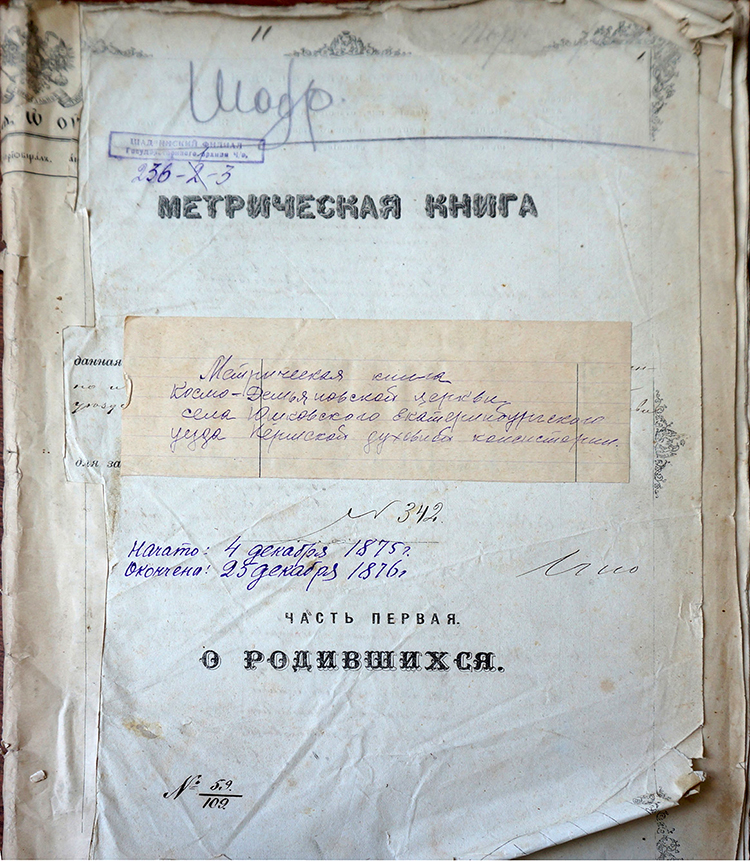 11
Шадр.
ШАДРИНСКИЙ ФИЛИАЛ
Государственного архива Ч.о.
236-2-3
МЕТРИЧЕСКАЯ КНИГА
данная
по
для за
Метрическая книга
Космо-Демьяновской церкви
села Юмковского Екатеринбургского
уезда Пермской духовной консистории.
№ 342
Начато: 4 декабря 1875г.
Окончена: 25 декабря 1876г
ЧАСТЬ ПЕРВАЯ.
О РОДИВШИХСЯ.
№ 59/109